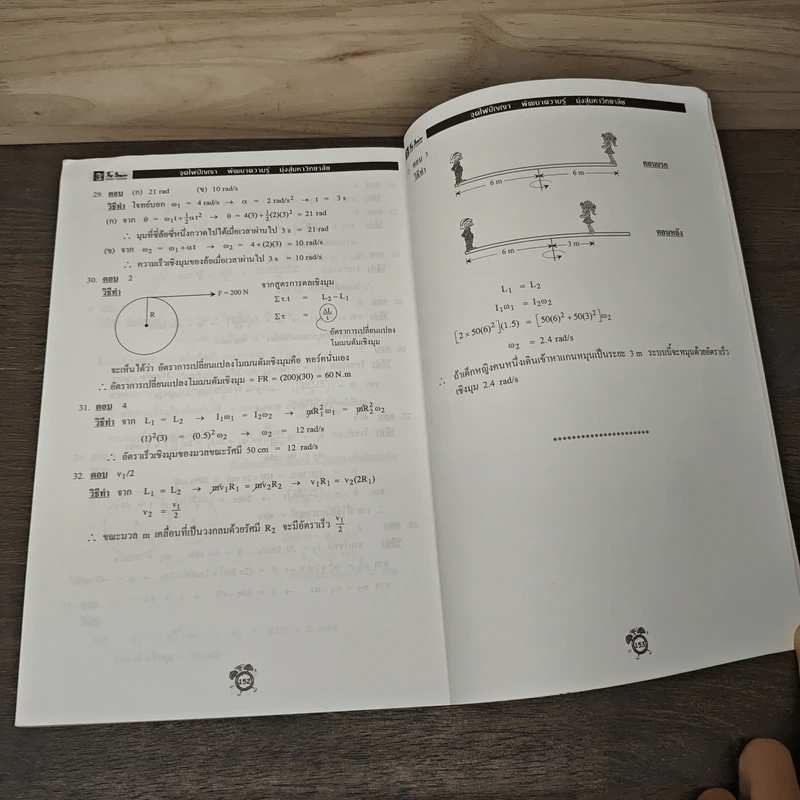 จุดไฟปัญญา พัฒนาความรู้ มุ่งสู่มหาวิทยาลัย
29. ตอบ (ก) 21 rad (ข) 10 rad/s
วิธีทำ โจทย์บอก ω₁ = 4 rad/s → α = 2 rad/s² → t = 3 s
(ก) จาก θ = ω₁t + ½αt² → θ = 4(3) + ½(2)(3)² = 21 rad
∴ มุมที่ซี่ล้อซี่หนึ่งกวาดไปได้เมื่อเวลาผ่านไป 3 s = 21 rad
(ข) จาก ω₂ = ω₁ + αt → ω₂ = 4 + (2)(3) = 10 rad/s
∴ ความเร็วเชิงมุมของล้อเมื่อเวลาผ่านไป 3 s = 10 rad/s
30. ตอบ 2
วิธีทำ
F = 200 N
R
จากสูตรการดลเชิงมุม
Στ.t = L₂ – L₁
Στ = ΔL/t
อัตราการเปลี่ยนแปลง
โมเมนตัมเชิงมุม
จะเห็นได้ว่า อัตราการเปลี่ยนแปลงโมเมนตัมเชิงมุมคือ ทอร์คนั่นเอง
∴ อัตราการเปลี่ยนแปลงโมเมนตัมเชิงมุม = FR = (200)(30) = 60 N.m
31. ตอบ 4
วิธีทำ จาก L₁ = L₂ → I₁ω₁ = I₂ω₂ → mR₁²ω₁ = mR₂²ω₂
(1)²(3) = (0.5)²ω₂ → ω₂ = 12 rad/s
∴ อัตราเร็วเชิงมุมของมวลขณะรัศมี 50 cm = 12 rad/s
32. ตอบ v₁/2
วิธีทำ จาก L₁ = L₂ → mv₁R₁ = mv₂R₂ → v₁R₁ = v₂(2R₁)
v₂ = v₁/2
∴ ขณะมวล m เคลื่อนที่เป็นวงกลมด้วยรัศมี R₂ จะมีอัตราเร็ว v₁/2
152
จุดไฟปัญญา พัฒนาความรู้ มุ่งสู่มหาวิทยาลัย
ตอบ 3
วิธีทำ
6 m 6 m
ตอนแรก
6 m 3 m
ตอนหลัง
L₁ = L₂
I₁ω₁ = I₂ω₂
[2 × 50(6)²](1.5) = [50(6)² + 50(3)²]ω₂
ω₂ = 2.4 rad/s
∴ ถ้าเด็กหญิงคนหนึ่งเดินเข้าหาแกนหมุนเป็นระยะ 3 m ระบบนี้จะหมุนด้วยอัตราเร็ว
เชิงมุม 2.4 rad/s
********************
153